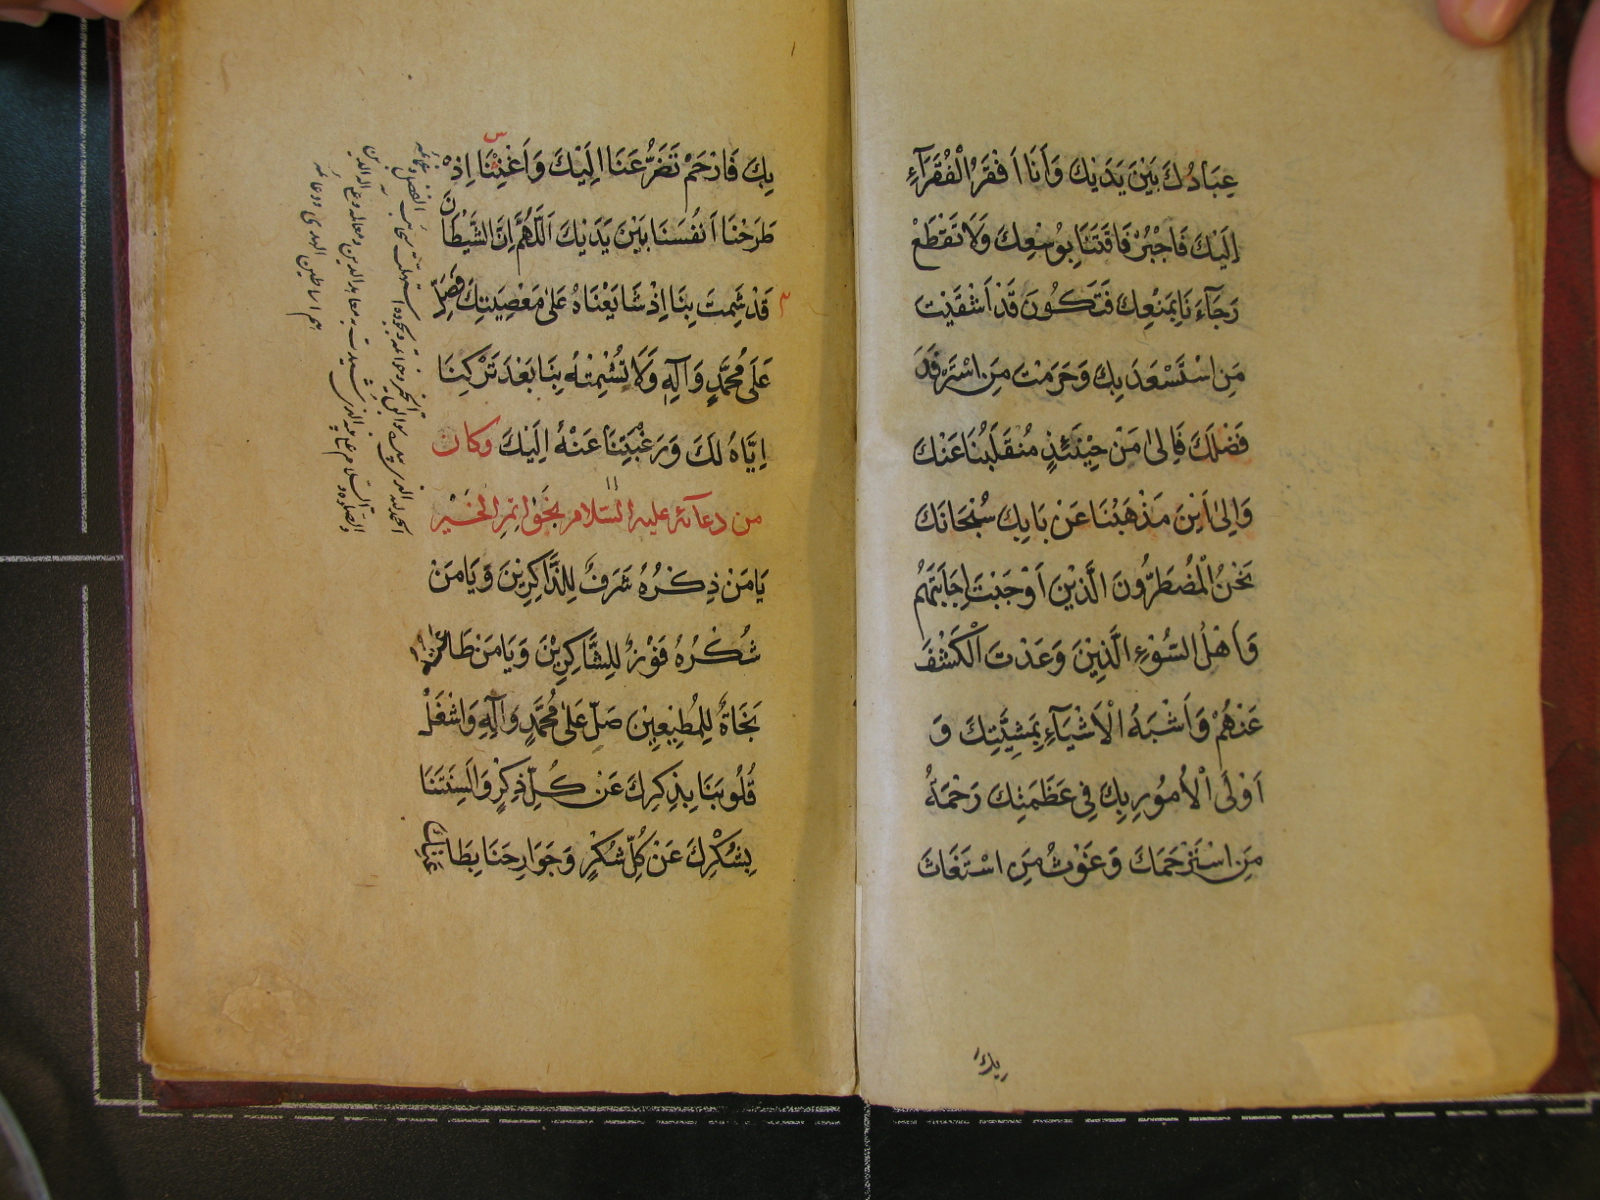 عِبَادُكَ بَيْنَ يَدَيْكَ وَأَنَا اَفْقَرُ الْفُقَرَآءِ
اِلَيْكَ فَاجْبُرْ فَاقَتَنَا بِوُسْعِكَ وَلَا تَقْطَعْ
رَجَآءَنَا بِمَنْعِكَ فَتَكُونَ قَدْ اَشْقَيْتَ
مَنِ اسْتَسْعَدَ بِكَ وَحَرَمْتَ مَنِ اسْتَرْفَدَ
فَضْلَكَ فَاِلىٰ مَنْ حِيْنَئِذٍ مُنْقَلَبُنَا عَنْكَ
وَاِلىٰ اَيْنَ مَذْهَبُنَا عَنْ بَابِكَ سُبْحَانَكَ
نَحْنُ الْمُضْطَرُّونَ الَّذِيْنَ اَوْجَبْتَ اِجَابَتَهُمْ
وَاَهْلُ السُّوْءِ الَّذِيْنَ وَعَدْتَ الْكَشْفَ
عَنْهُمْ وَاَشْبَهُ الْاَشْيَآءِ بِمَشِيَّتِكَ وَ
اَوْلَى الْاُمُوْرِ بِكَ فِي عَظَمَتِكَ رَحْمَةُ
مَنِ اسْتَرْحَمَكَ وَغَوْثُ مَنِ اسْتَغَاثَ
بِكَ
بِكَ فَارْحَمْ تَضَرُّعَنَا اِلَيْكَ وَاَغْثِنَا اِذْ
طَرَحْنَا اَنْفُسَنَا بَيْنَ يَدَيْكَ اَللّٰهُمَّ اِنَّ الشَّيْطَانَ
قَدْ شَمِتَ بِنَا اِذْ شَايَعْنَاهُ عَلىٰ مَعْصِيَتِكَ فَصَلِّ
عَلىٰ مُحَمَّدٍ وَآلِهِ وَلَا تُشْمِتْهُ بِنَا بَعْدَ تَرْكِنَا
اِيَّاهُ لَكَ وَرَغْبَتِنَا عَنْهُ اِلَيْكَ وكان
من دعآئه عليه السّلام بخواتم الخَيْر
يَا مَنْ ذِكْرُهُ شَرَفٌ لِلذَّاكِرِيْنَ وَيَا مَنْ
شُكْرُهُ فَوْزٌ لِلشَّاكِرِيْنَ وَيَا مَنْ طَاعَتُهُ
نَجَاةٌ لِلْمُطِيْعِيْنَ صَلِّ عَلىٰ مُحَمَّدٍ وَآلِهِ وَاشْغَلْ
قُلُوْبَنَا بِذِكْرِكَ عَنْ كُلِّ ذِكْرٍ وَاَلْسِنَتَنَا
بِشُكْرِكَ عَنْ كُلِّ شُكْرٍ وَجَوَارِحَنَا بِطَاعَتِكَ